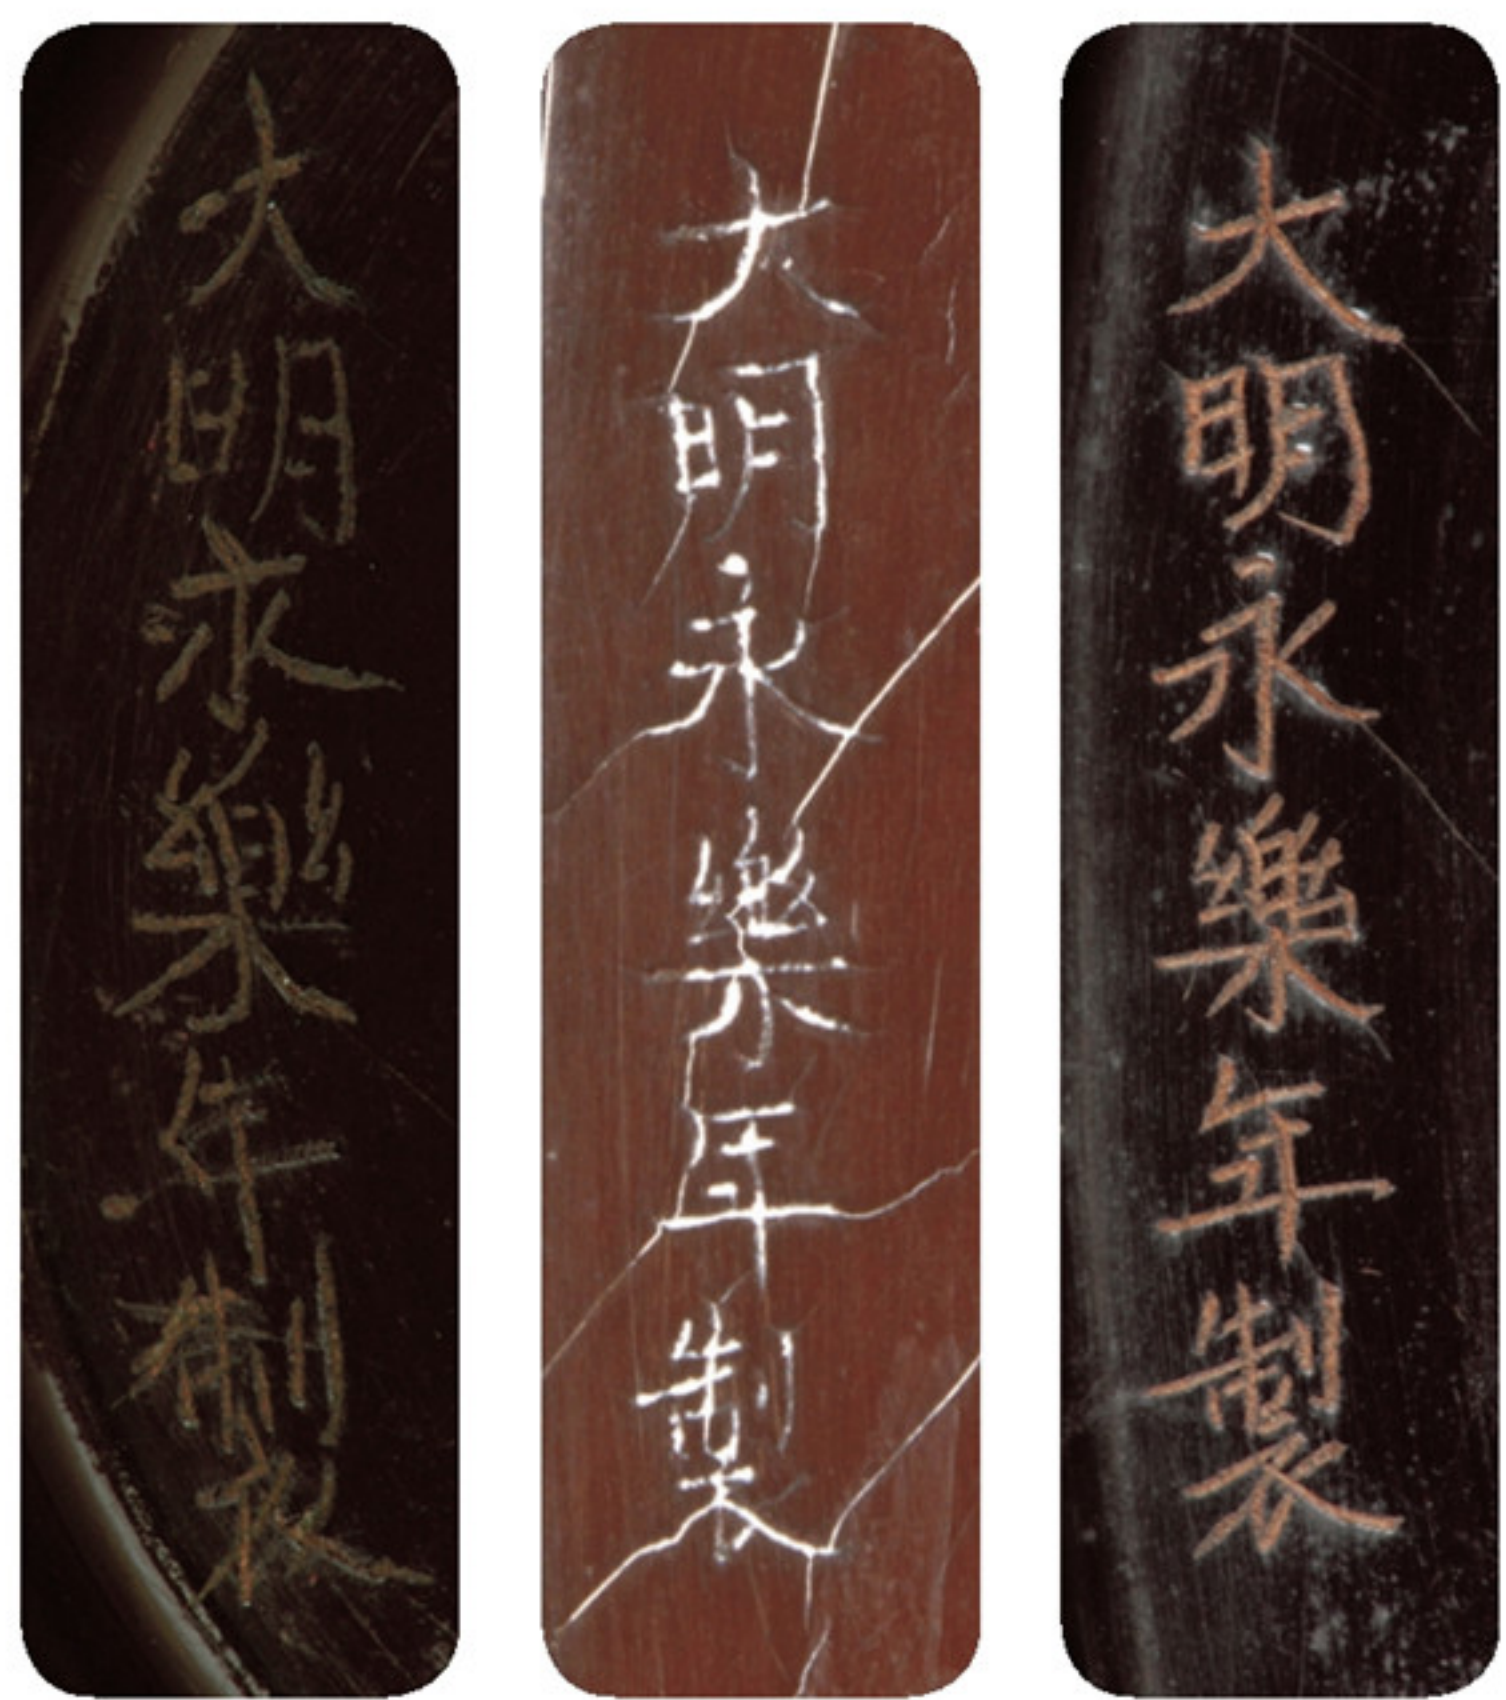 大明永樂年製
大明永樂年製
大明永樂年製